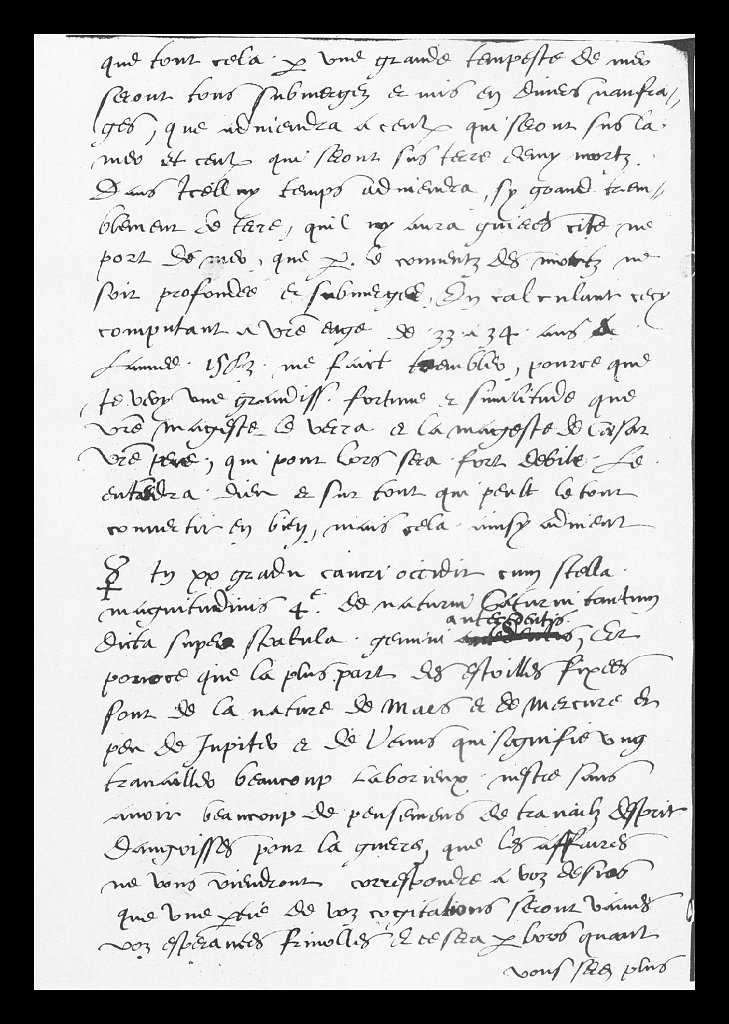 que tout cela. p une grande tempeste de mer
seront tous submergez et mis en divers naufra-
ges, que adviendra a ceulx qui seront sus la
mer et ceulx qui seront sus terre demy mortz.
Dans Icelluy temps adviendra, sy grand trem-
blement de terre, quil ny aura guieres cite ne
port de mer, que p. le comentz des mortz ne
soit profondee et submergee, En calculant cecy
computant a vre eage de .33. a 34. ans
Lannee. 1563. me faict trembler, pource que
Je voy une grandiss. fortune et similitude que
vre mageste le verra et la mageste de Cæsar
vre pere, qui pour lors sera fort debile. Le
entendra dieu et sur tout qui peult le tout
convertir en bien, mais cela ainsy advient
In xx gradu cancri occidit cum stella
magnitudinis 4e. de natura Saturni tantum
antecedentis
dicta super scatula gemini, Et
pource que la plus part des estoilles fixees
sont de la nature de Mars et de Mercure et
peu de Jupiter et de Venus qui signifie ung
travailler beaucoup laborieux. nestre sans
avoir beaucoup de pensemens de travailz desprit
dangoisses pour la guerre, que les affaires
ne vous viendront correspondre a voz desirs
que une ptie de voz cogitations seront vaines
voz esperances frivolles et ce sera p lors quant
vous serez plus